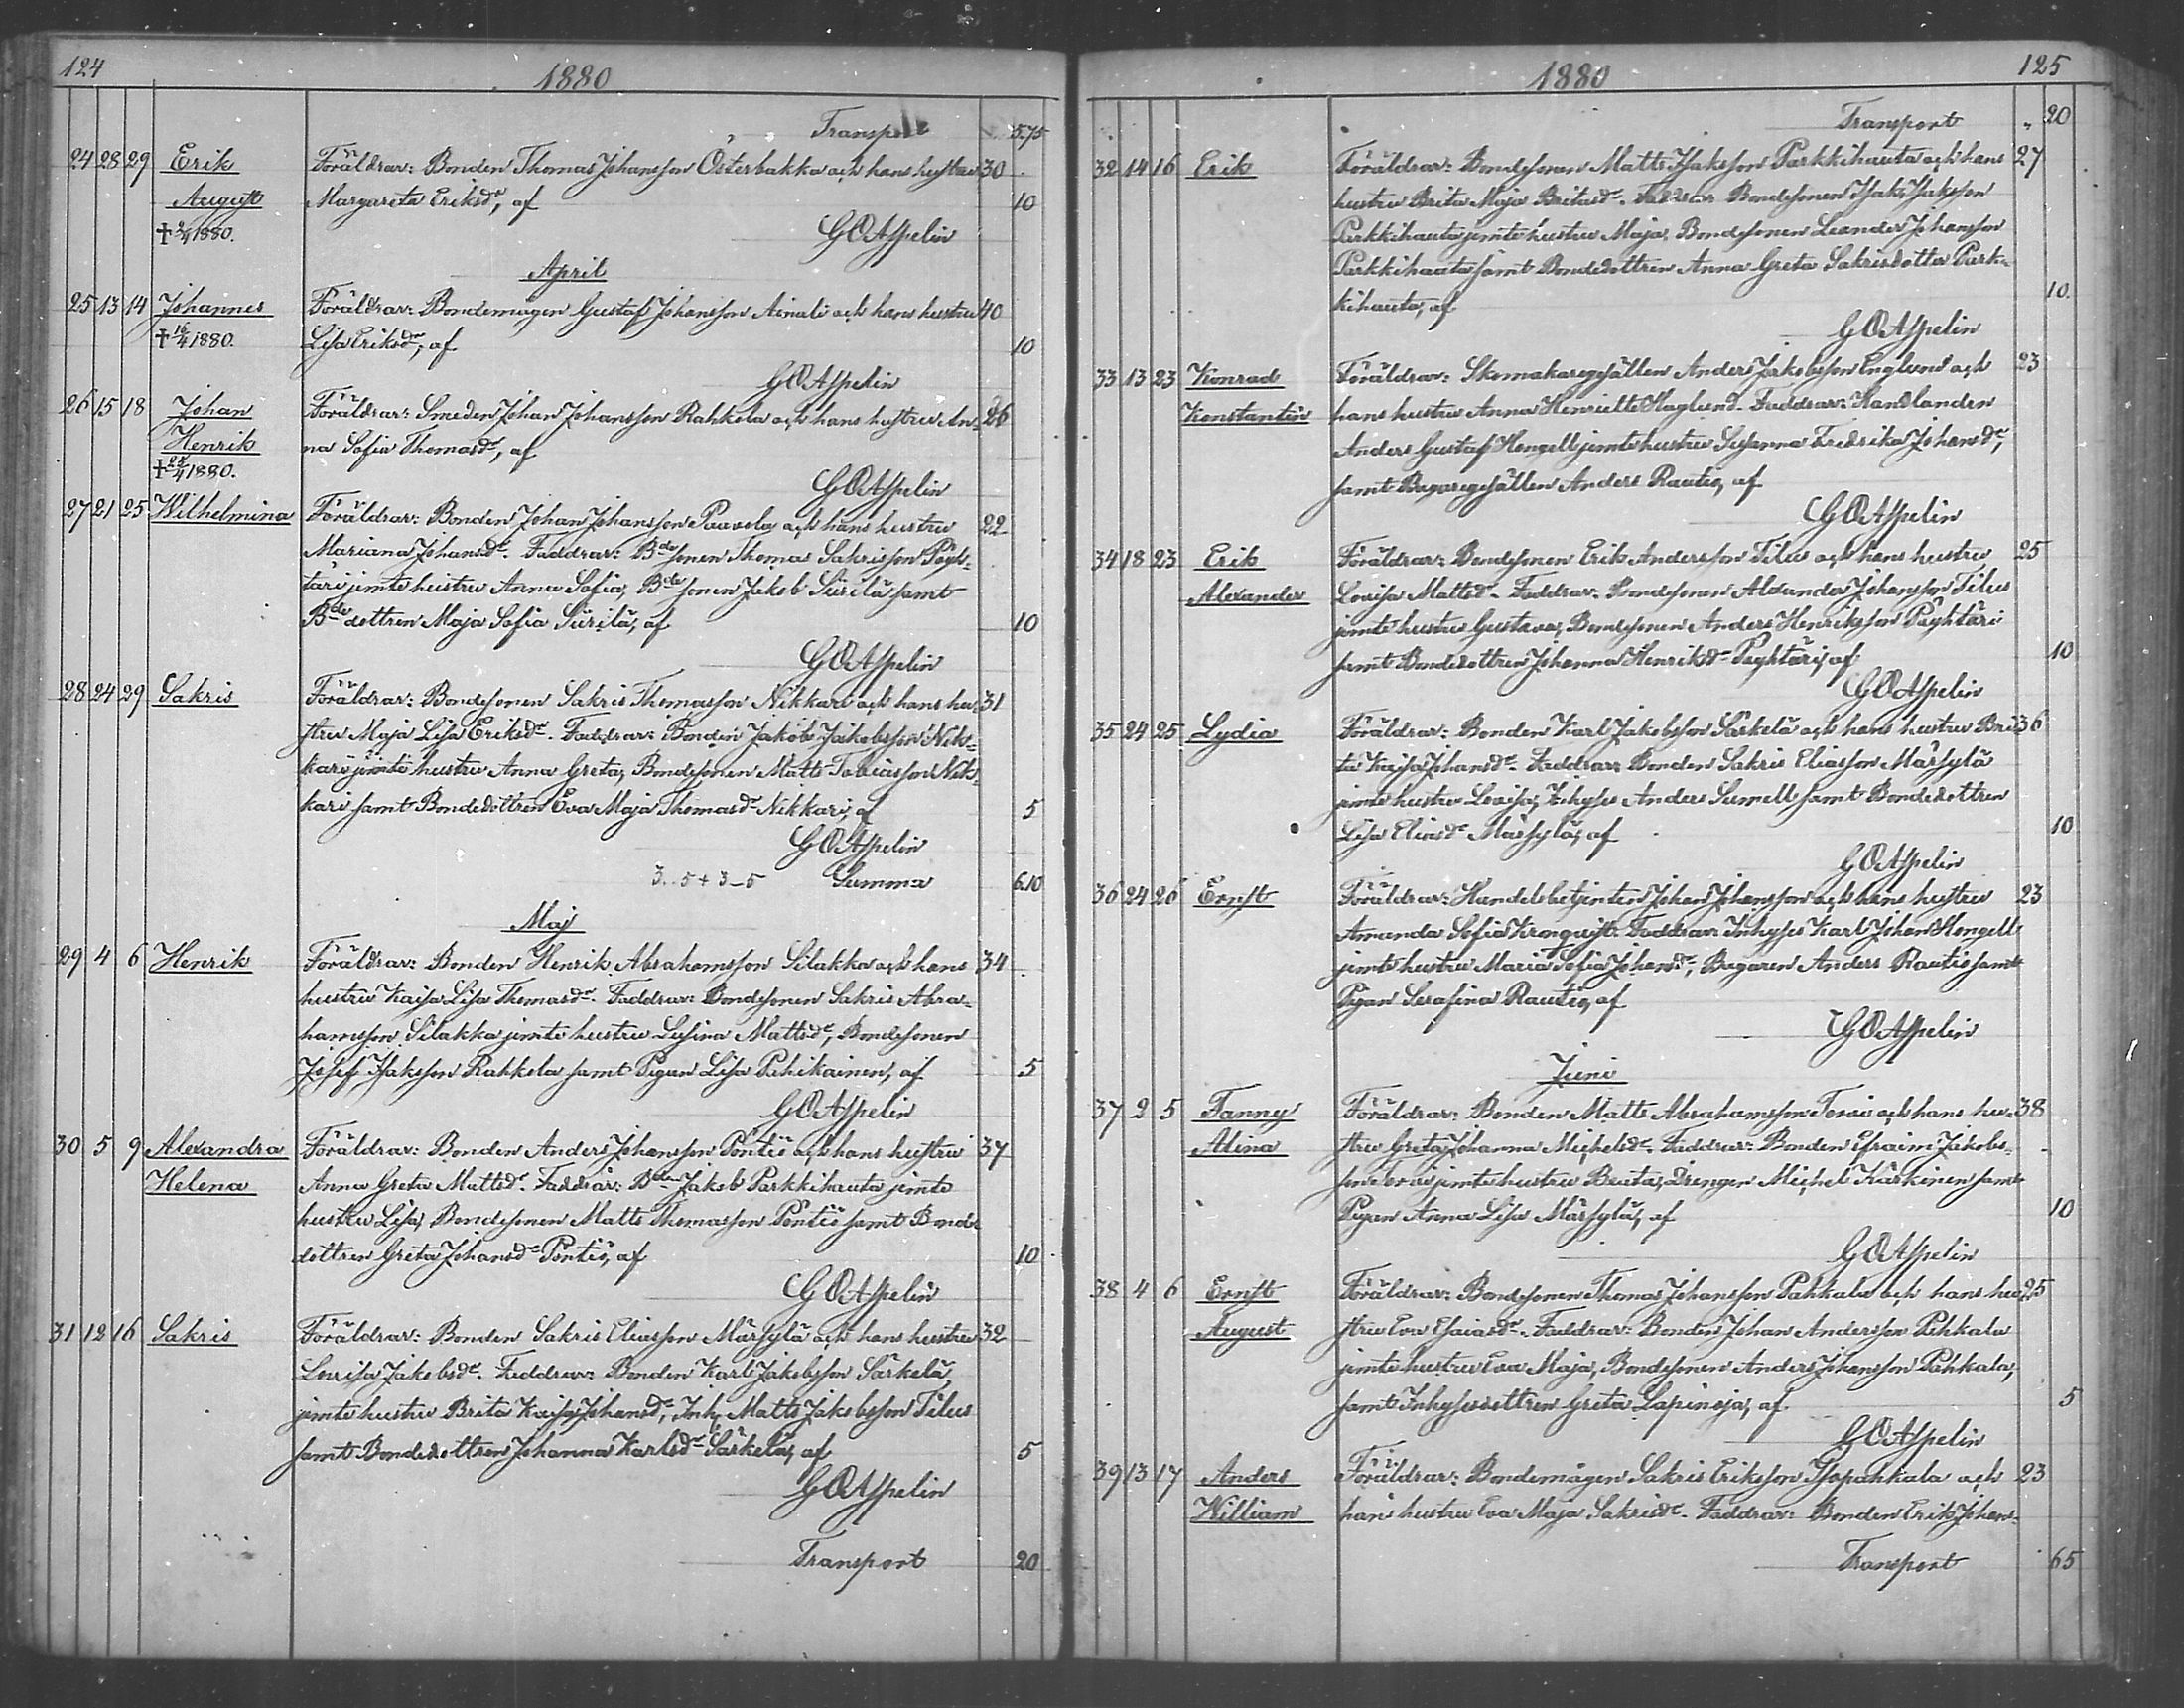 124
1880
Transport 5.75
24 28 29 Erik Föräldrar: Bonden Thomas Johansson Österbakka och hans hustru 30
August Margareta Eriksdr, af 10
† 2/4 1880. G O Aspelin
April
25 13 14 Johannes Föräldrar: Bondemågen Gustaf Johansson Ainali och hans hustru 40
† 16/4 1880. Lisa Eriksdr, af 10
G O Aspelin
26 15 18 Johan Föräldrar: Smeden Johan Johansson Rahkola och hans hustru An- 26
Henrik na Sofia Thomasdr, af
† 25/4 1880. G O Aspelin
27 21 25 Wilhelmina Föräldrar: Bonden Johan Johansson Paavola och hans hustru 22
Mariana Johansdr. Faddrar: Bdesonen Thomas Sakrisson Pöyh-
täri jemte hustru Anna Sofia, Bdesonen Jakob Siirilä samt
Bdedottren Maja Sofia Siirilä, af 10
G O Aspelin
28 24 29 Sakris Föräldrar: Bondesonen Sakris Thomasson Nikkari och hans hu- 31
stru Maja Lisa Eriksdr. Faddrar: Bonden Jakob Jakobsson Nik-
kari jemte hustru Anna Greta, Bondesonen Matts Tobiasson Nik-
kari samt Bondedottren Eva Maja Thomasdr Nikkari, af 5
G O Aspelin
3..5 + 3-5 Summa 6.10
Maj
29 4 6 Henrik Föräldrar: Bonden Henrik Abrahamsson Silakka och hans 34
hustru Kaisa Lisa Thomasdr. Faddrar: Bondesonen Sakris Abra-
hamsson Silakka jemte hustru Susina Mattsdr, Bondesonen
Josef Isaksson Rahkola samt Pigan Lisa Pahikainen, af 5
G O Aspelin
30 5 9 Alexandra Föräldrar: Bonden Anders Johansson Pöntiö och hans hustru 37
Helena Anna Greta Mattsdr. Faddrar: Bden Jakob Parkkihauta jemte
hustru Lisa, Bondesonen Matts Thomasson Pöntiö samt Bonde
dottren Greta Johansdr Pöntiö, af 10
G O Aspelin
31 12 16 Sakris Föräldrar: Bonden Sakris Eliasson Märsylä och hans hustru 32
Lovisa Jakobsdr. Faddrar: Bonden Karl Jakobsson Särkelä
jemte hustru Brita Kaisa Johansdr, Inh. Matts Jakobsson Tilus
samt Bondedottren Johanna Karlsdr Särkelä, af 5
G O Aspelin
Transport 20
125
1880
Transport " 20
32 14 16 Erik Föräldrar: Bondesonen Matts Isaksson Parkkihauta och hans 27
hustru Brita Maja Britasdr. Faddrar Bondesonen Isak Isaksson
Parkkihauta jemte hustru Maja, Bondesonen Leander Johansson
Parkkihauta samt Bondedottren Anna Greta Sakrisdotter Park-
kihauta, af 10.
G O Aspelin
33 13 23 Konrad Föräldrar: Skomakaregesällen Anders Jakobsson Englund och 23
Konstantin hans hustru Anna Henriette Haglund. Faddrar: Handlanden
Anders Gustaf Hongell jemte hustru Susanna Fredrika Johansdr,
samt Bagaregesällen Anders Rautio, af
G O Aspelin
34 18 23 Erik Föräldrar: Bondesonen Erik Andersson Tilus och hans hustru 25
Alexander Lovisa Mattsdr. Faddrar: Bondesonen Alexander Johansson Tilus
jemte hustru Gustava, Bondesonen Anders Henriksson Pöyhtäri
samt Bondedottren Johanna Henriksdr Pöyhtäri, af 10
G O Aspelin
35 24 25 Lydia Föräldrar: Bonden Karl Jakobsson Särkelä och hans hustru Bri- 36
ta Kaisa Johansdr. Faddrar: Bonden Sakris Eliasson Märsylä
jemte hustru Lovisa, Inhyses Anders Sumell samt Bondedottren
Lisa Eliasdr Märsylä, af 10
G O Aspelin
36 24 26 Ernst Föräldrar: Handelsbetjenten Johan Johansson och hans hustru 23
Amanda Sofia Kronquist. Faddrar: Inhyses Karl Johan Hongell
jemte hustru Maria Sofia Johansdr, Bagaren Anders Rautio samt
Pigan Serafina Rautio, af
G O Aspelin
Juni
37 2 5 Fanny Föräldrar: Bonden Matts Abrahamsson Torvi och hans hu- 38
Alina stru Greta Johanna Michelsdr. Faddrar: Bonden Efraim Jakobs-
son Torvi jemte hustru Brita, Drengen Michel Kärkinen samt
Pigan Anna Lisa Märsylä, af 10
G O Aspelin
38 4 6 Ernst Föräldrar: Bondesonen Thomas Johansson Pahkala och hans hu- 25
August stru Eva Esaiasdr. Faddrar: Bonden Johan Andersson Pahkala
jemte hustru Eva Maja, Bondesonen Anders Johansson Pahkala,
samt Inhysesdottren Greta Lapinoja, af 5
G O Aspelin
39 13 17 Anders Föräldrar: Bondemågen Sakris Eriksson Isopahkala och 23
William hans hustru Eva Maja Sakrisdr. Faddrar: Bonden Erik Johans-
Transport 65